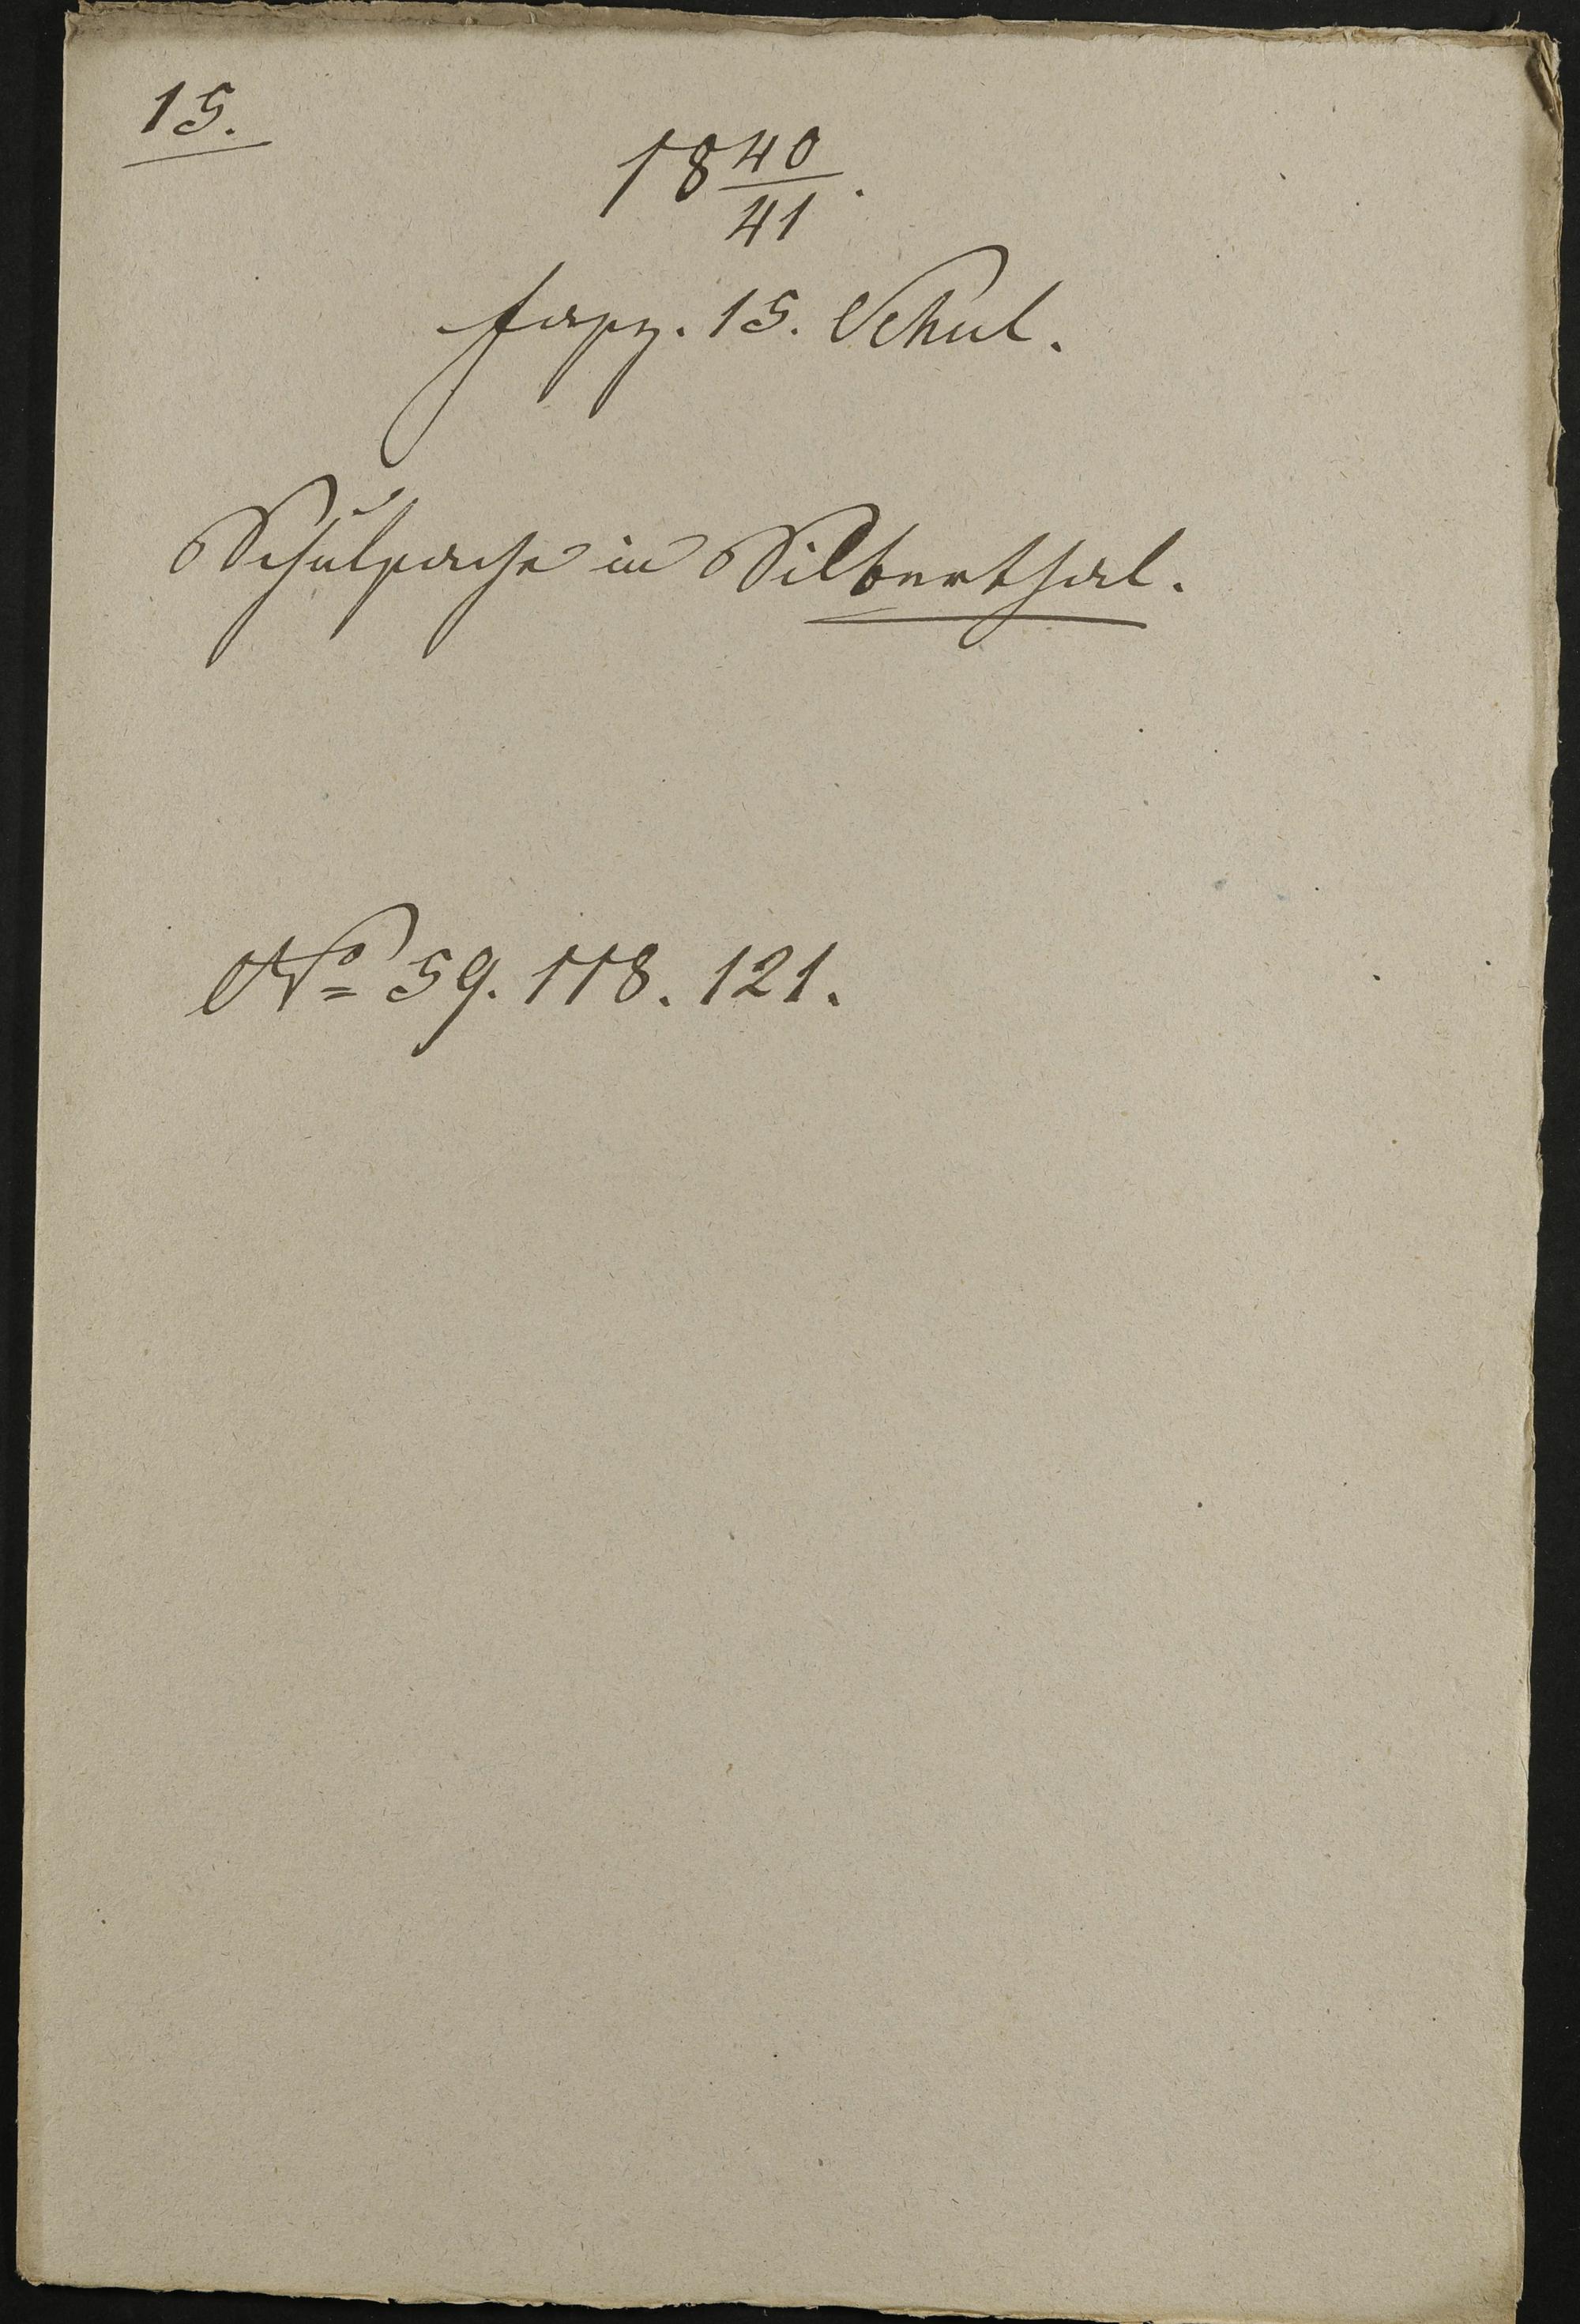 15.
18 40/41.
fasz. 15. Schul.
Schulsache in Silberthal.
No 59. 118. 121.